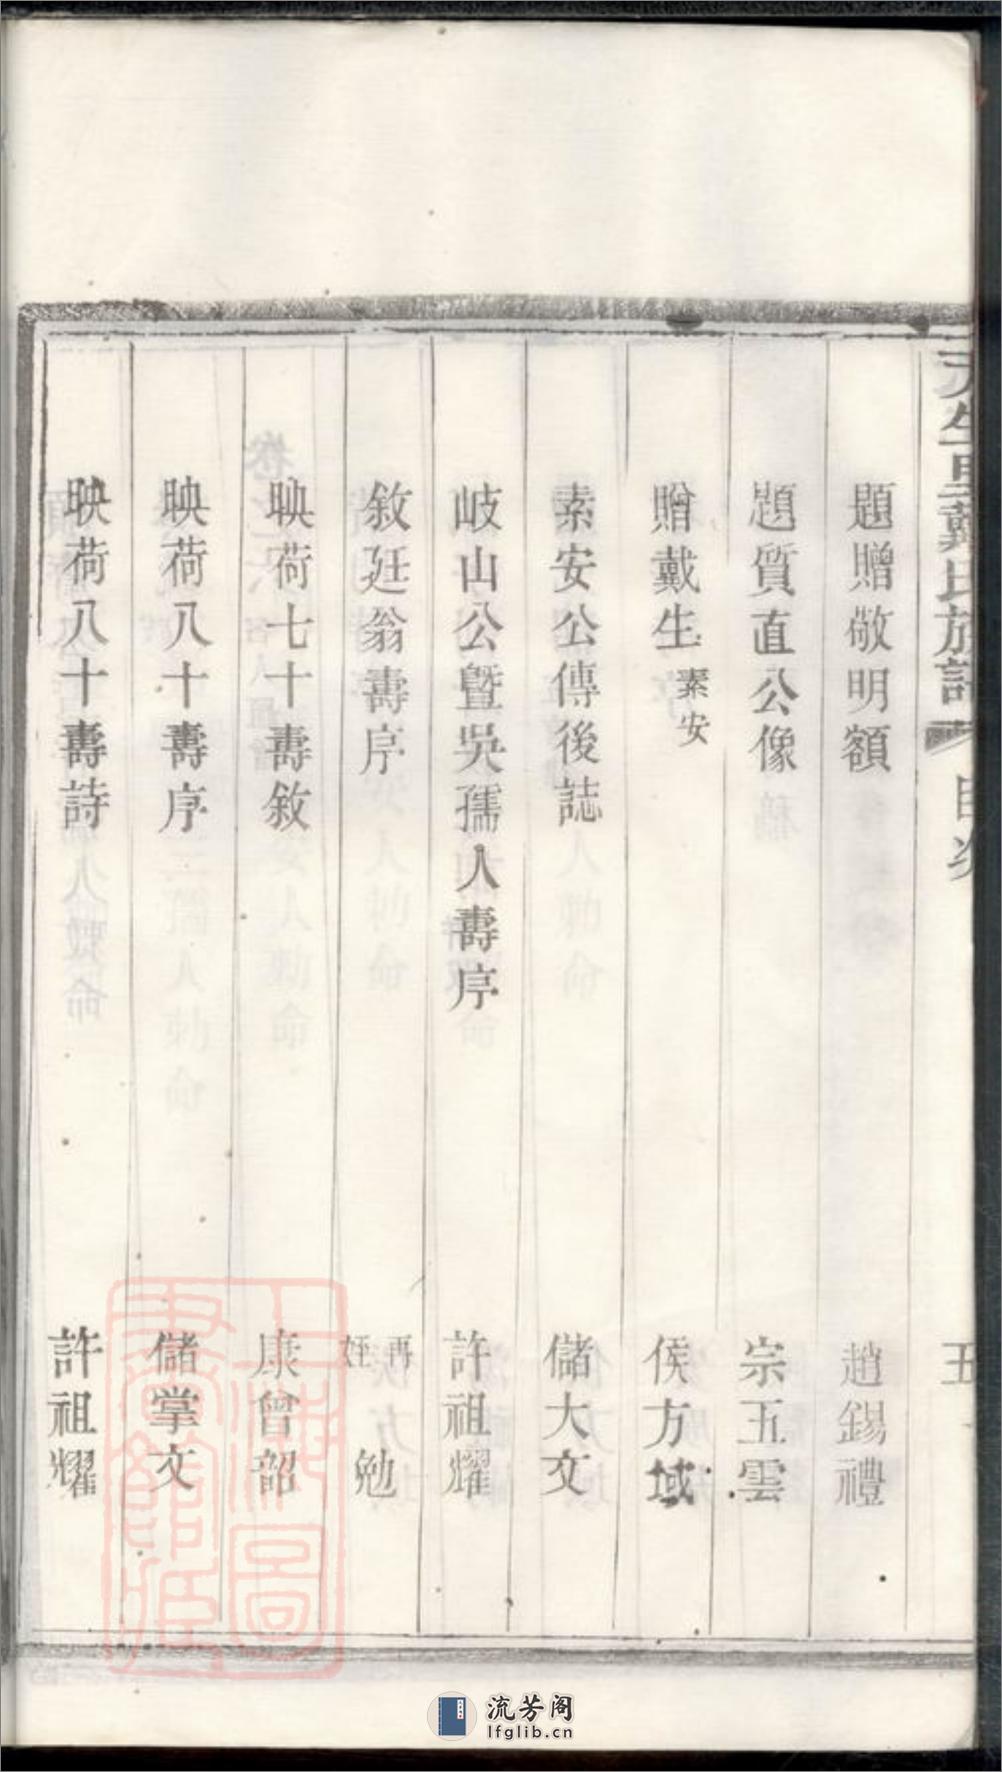 天生里戴氏族譜 目次 五
題贈敬明額 趙錫禮
題質直公像 宗五雲
贈戴生 素安 侯方域
素安公傳後誌 儲大文
岐山公暨吳孺人壽序 許祖耀
敘廷翁壽序 再姪 勉
映荷七十壽敘 康曾韶
映荷八十壽序 儲掌文
映荷八十壽詩 許祖耀
上海圖書館藏
流芳阁
lfglib.cn